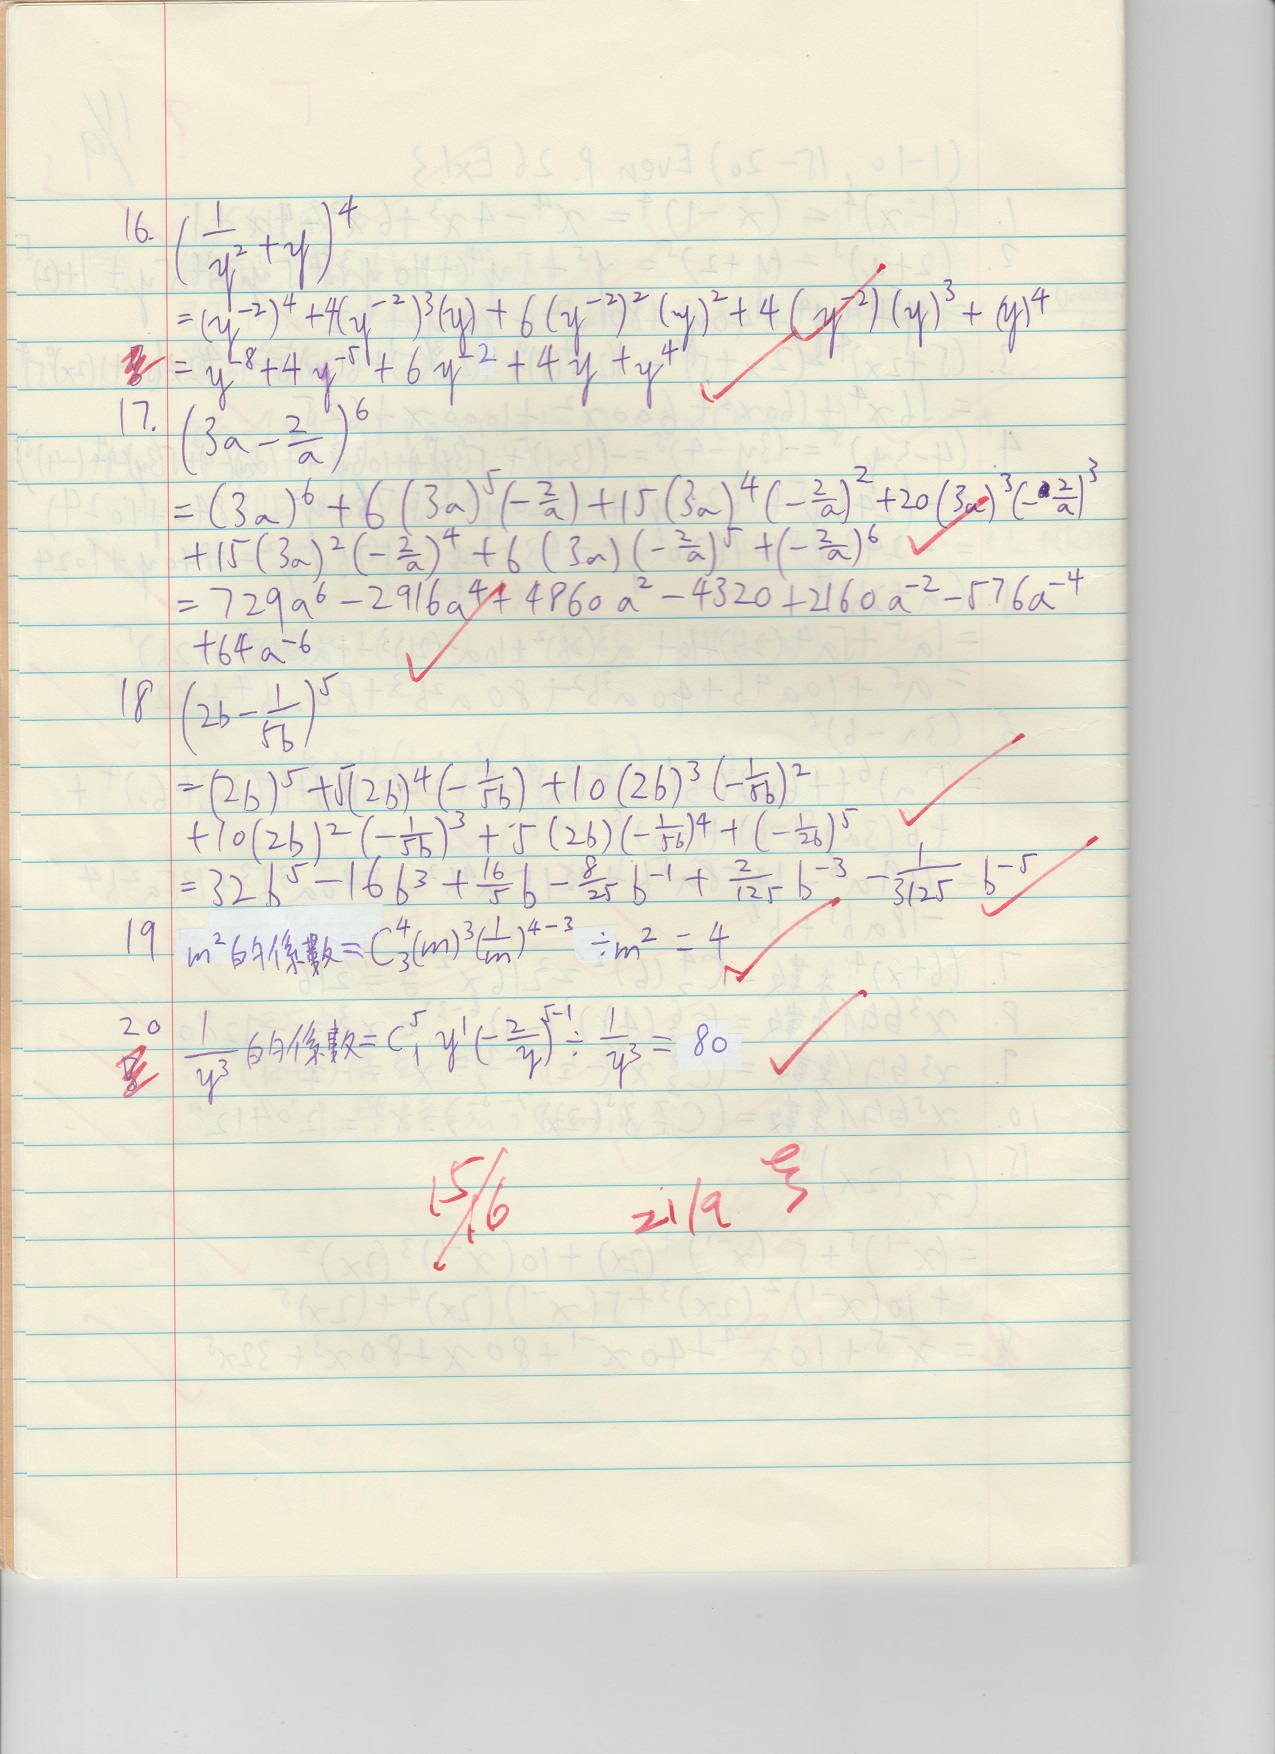 16. (1/y² + y)⁴
= (y⁻²)⁴ + 4(y⁻²)³(y) + 6(y⁻²)²(y)² + 4(y⁻²)(y)³ + (y)⁴
= y⁻⁸ + 4y⁻⁵ + 6y⁻² + 4y + y⁴
17. (3a - 2/a)⁶
= (3a)⁶ + 6(3a)⁵(-2/a) + 15(3a)⁴(-2/a)² + 20(3a)³(-2/a)³
+ 15(3a)²(-2/a)⁴ + 6(3a)(-2/a)⁵ + (-2/a)⁶
= 729a⁶ - 2916a⁴ + 4860a² - 4320 + 2160a⁻² - 576a⁻⁴
+ 64a⁻⁶
18 (2b - 1/5b)⁵
= (2b)⁵ + 5(2b)⁴(-1/5b) + 10(2b)³(-1/5b)²
+ 10(2b)²(-1/5b)³ + 5(2b)(-1/5b)⁴ + (-1/2b)⁵
= 32b⁵ - 16b³ + 16/5 b - 8/25 b⁻¹ + 2/125 b⁻³ - 1/3125 b⁻⁵
19 m²的係數 = C⁴₃(m)³(1/m)⁴⁻³ ÷ m² = 4
20 1/y³的係數 = C⁵₁ y¹(-2/y)⁵⁻¹ ÷ 1/y³ = 80
15/16 21/9